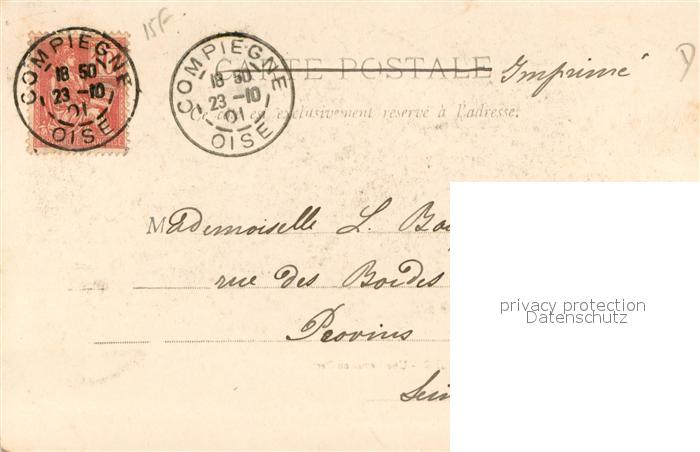 15F
COMPIEGNE
18 50
23 -10
01
OISE
COMPIEGNE
18 50
23 -10
01
OISE
CARTE POSTALE Imprimé
D
Ce côté est exclusivement reservé à l'adresse.
Mademoiselle L.
rue des Bordes
Provins
privacy protection
Datenschutz